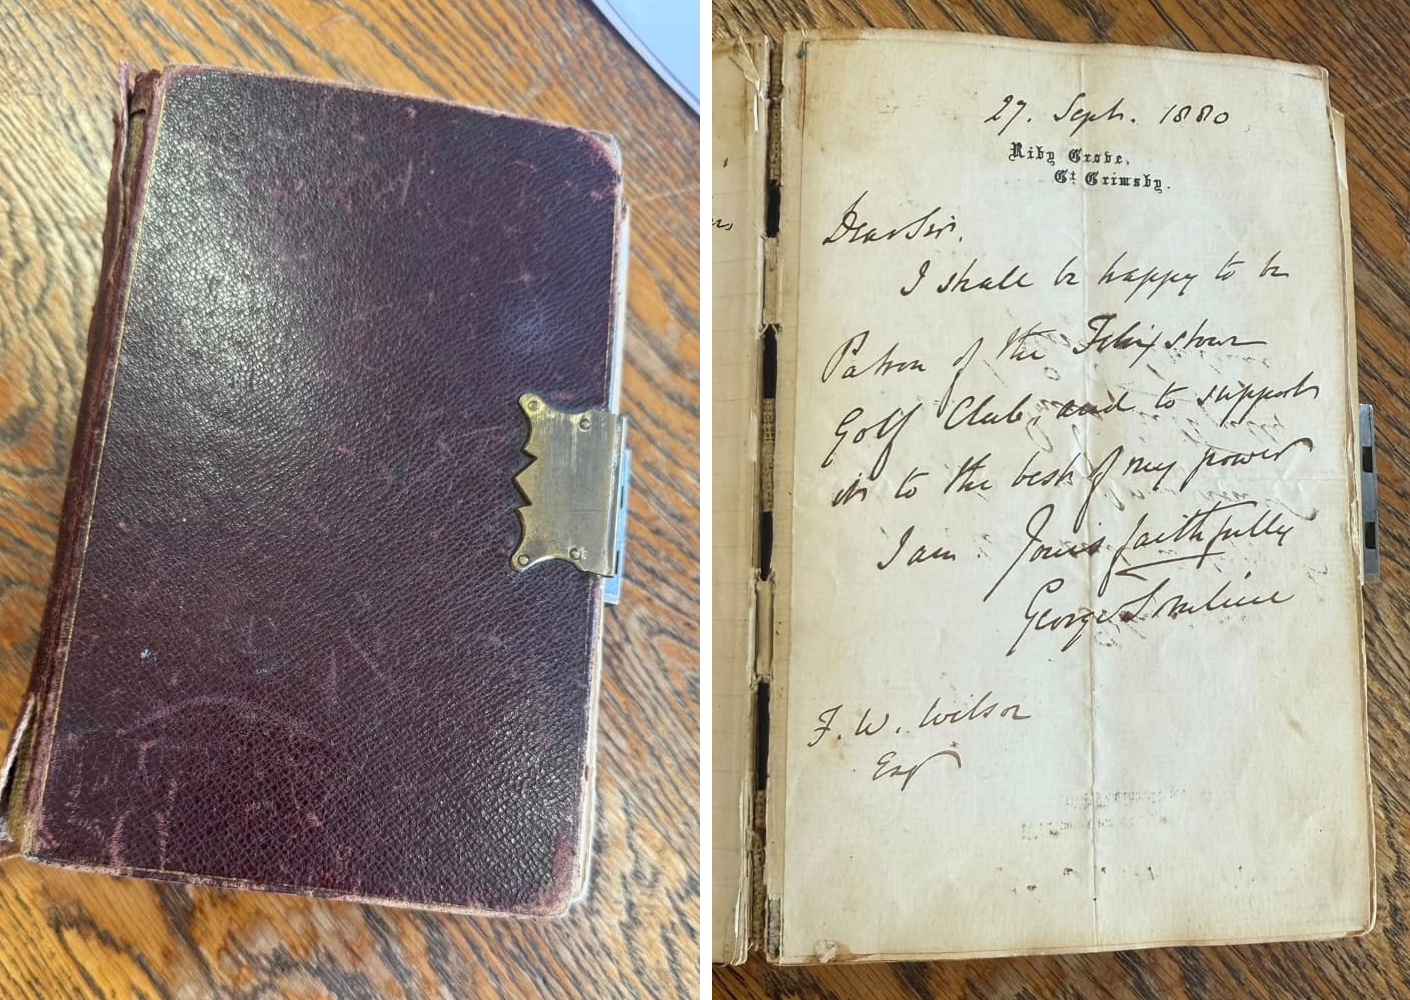 27. Sept. 1880
Riby Grove,
Gt Grimsby.
Dear Sir,
I shall be happy to be
Patron of the Felixstowe
Golf Club, and to support
it to the best of my power
I am Yours faithfully
George Tomline
F. W. Wilson
Esq